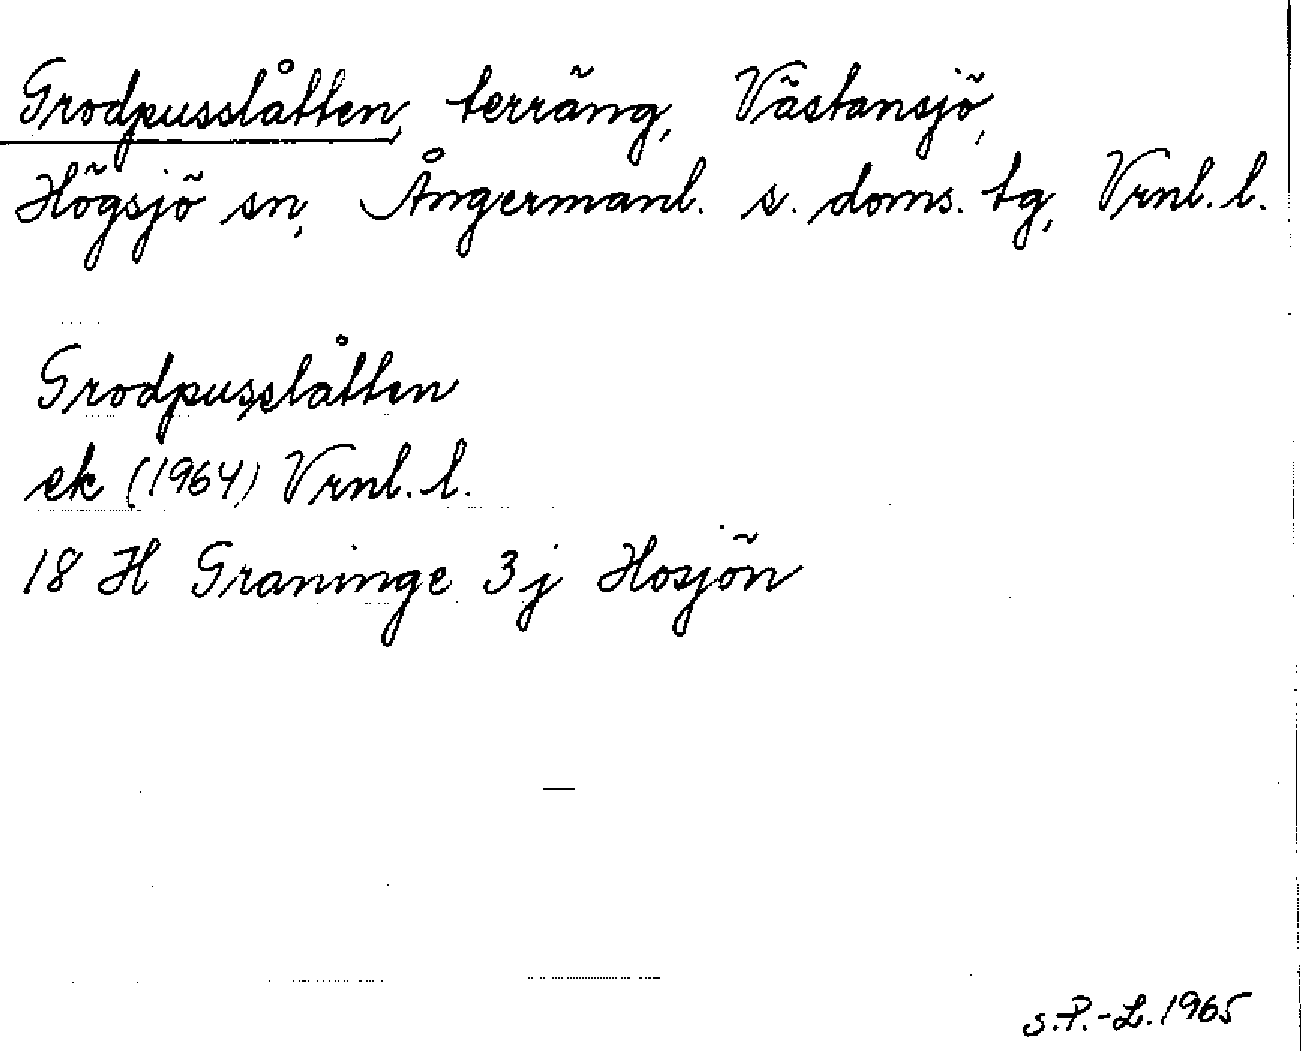 Grodpusslåtten, terräng, Västansjö,
Högsjö sn, Ångermanl. s. doms. tg, Vrnl. l.
Grodpusslåtten
ek (1964) Vrnl. l.
18 H Graninge 3j Hosjön
S.P.-L. 1965